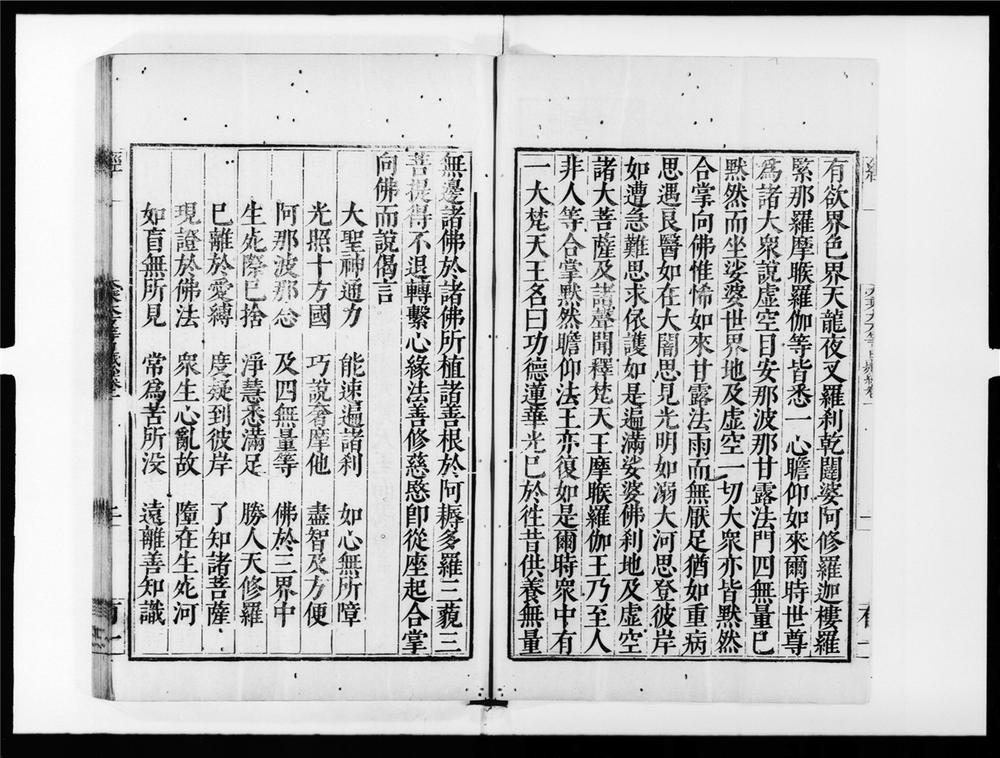 有欲界色界天龍夜叉羅刹乾闥婆阿修羅迦樓羅
緊那羅摩睺羅伽等皆悉一心瞻仰如來爾時世尊
爲諸大衆說虛空目安那波那甘露法門四無量已
默然而坐娑婆世界地及虛空一切大衆亦皆默然
合掌向佛惟悕如來甘露法雨而無厭足猶如重病
思遇良醫如在大闇思見光明如溺大河思登彼岸
如遭急難思求依護如是遍滿娑婆佛刹地及虛空
諸大菩薩及諸聲聞釋梵天王摩睺羅伽王乃至人
非人等合掌默然瞻仰法王亦復如是爾時衆中有
一大梵天王名曰功德蓮華光已於徃昔供養無量
無邊諸佛於諸佛所植諸善根於阿耨多羅三藐三
菩提得不退轉繫心緣法善修慈愍卽從座起合掌
向佛而說偈言
大聖神通力 能速遍諸刹 如心無所障
光照十方國 巧說奢摩他 盡智及方便
阿那波那念 及四無量等 佛於三界中
生死際已捨 淨慧悉滿足 勝人天修羅
已離於愛縛 度疑到彼岸 了知諸菩薩
現證於佛法 衆生心亂故 墮在生死河
如盲無所見 常爲苦所没 遠離善知識